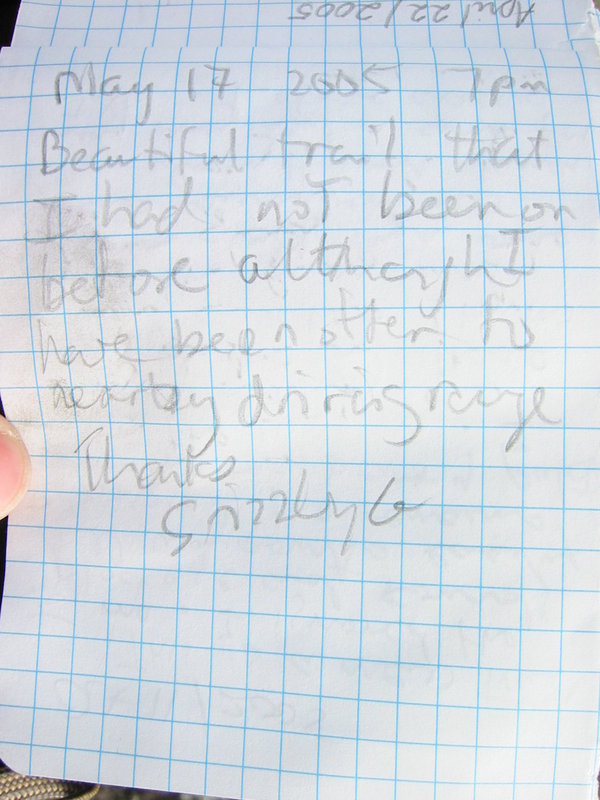 April 22/2005
May 17 2005 7pm
Beautiful trail that
I had not been on
before although I
have been often to
nearby driving range
Thanks
Grizzly G